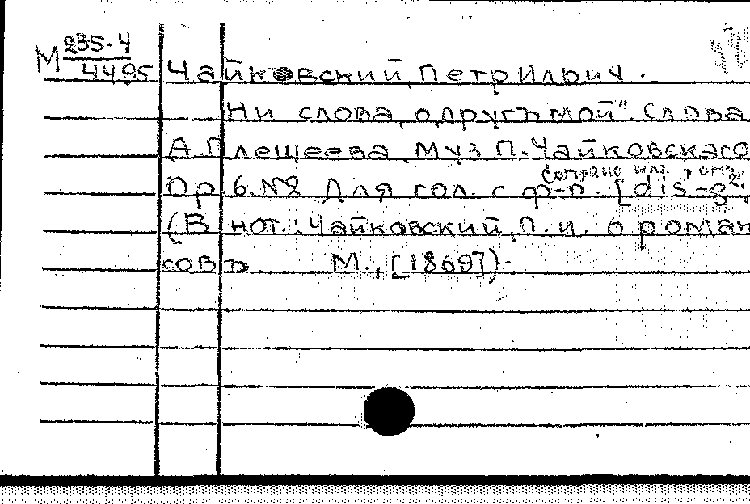 М 235-4
4495 Чайковский, Петр Ильич.
Ни слова, о другъ мой". Слова
А. Плещеева муз П. Чайковскаго
сопрано или
Op 6. №2 Для гол. с ф-п. [dis-g
(В нот.: Чайковский, П. И. 6 роман
совъ М., [1869]).